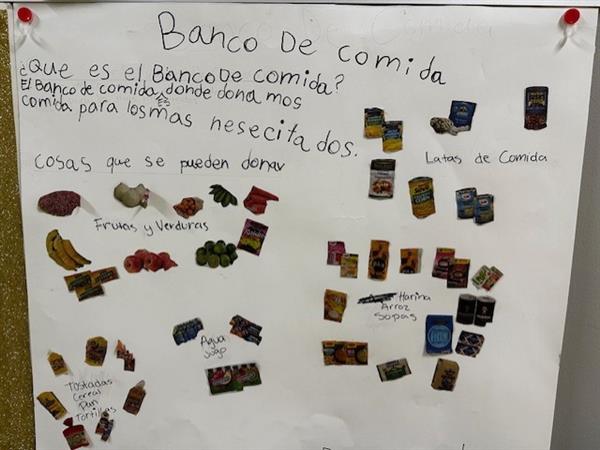 Banco De comida
¿Que es el Banco De comida?
El Banco de comida es donde donamos
comida para los mas nesecitados.
cosas que se pueden donar
Latas de Comida
Frutas y Verduras
Harina
Arroz
Sopas
Agua
Jugo
Tostadas
Cereal
Pan
Tortillas